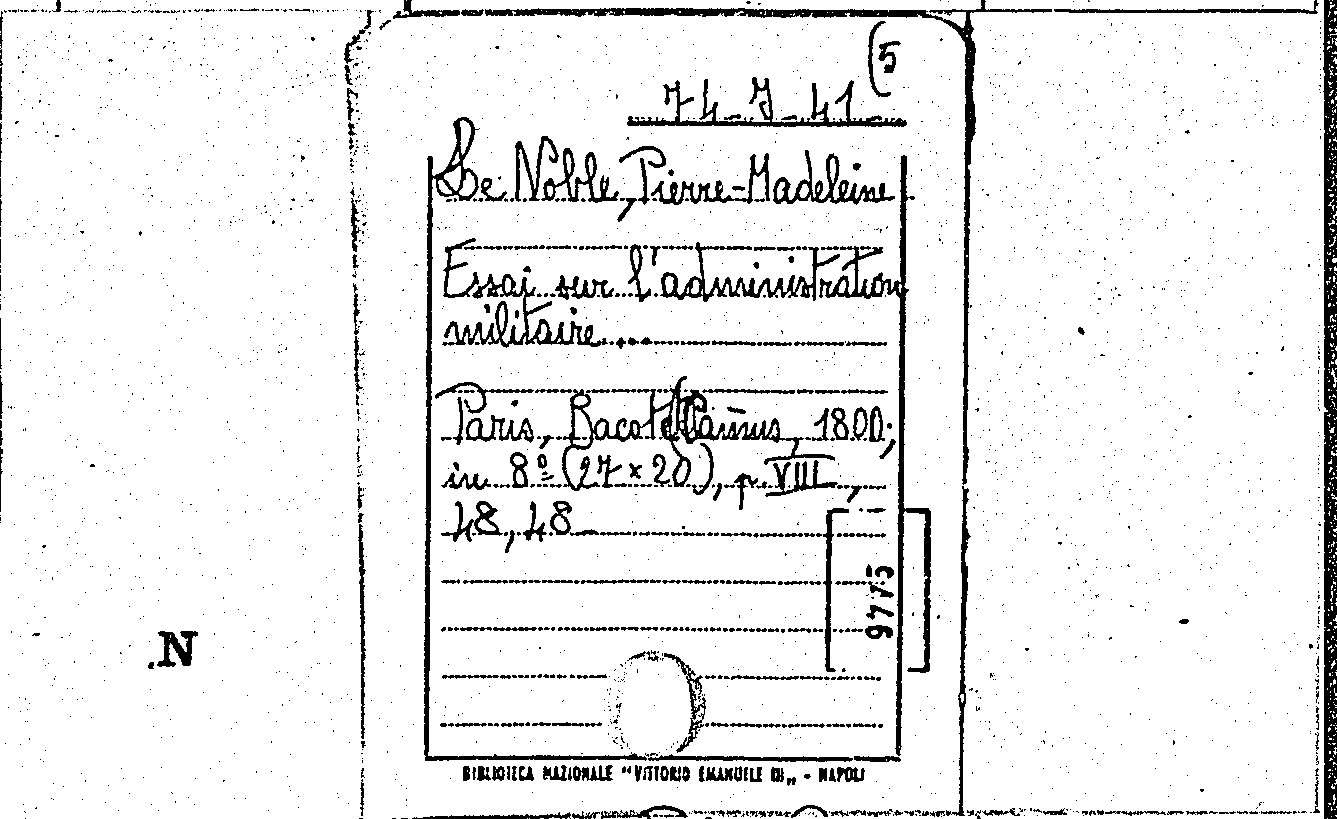 (5
74-J-41
Le Noble, Pierre-Madeleine
Essai sur l'administration
militaire...
Paris, Bacot Camus, 1800;
in 8º (27 x 20), p. VIII,
48, 48-
9775
.N
BIBLIOTECA NAZIONALE "VITTORIO EMANUELE III„ - NAPOLI